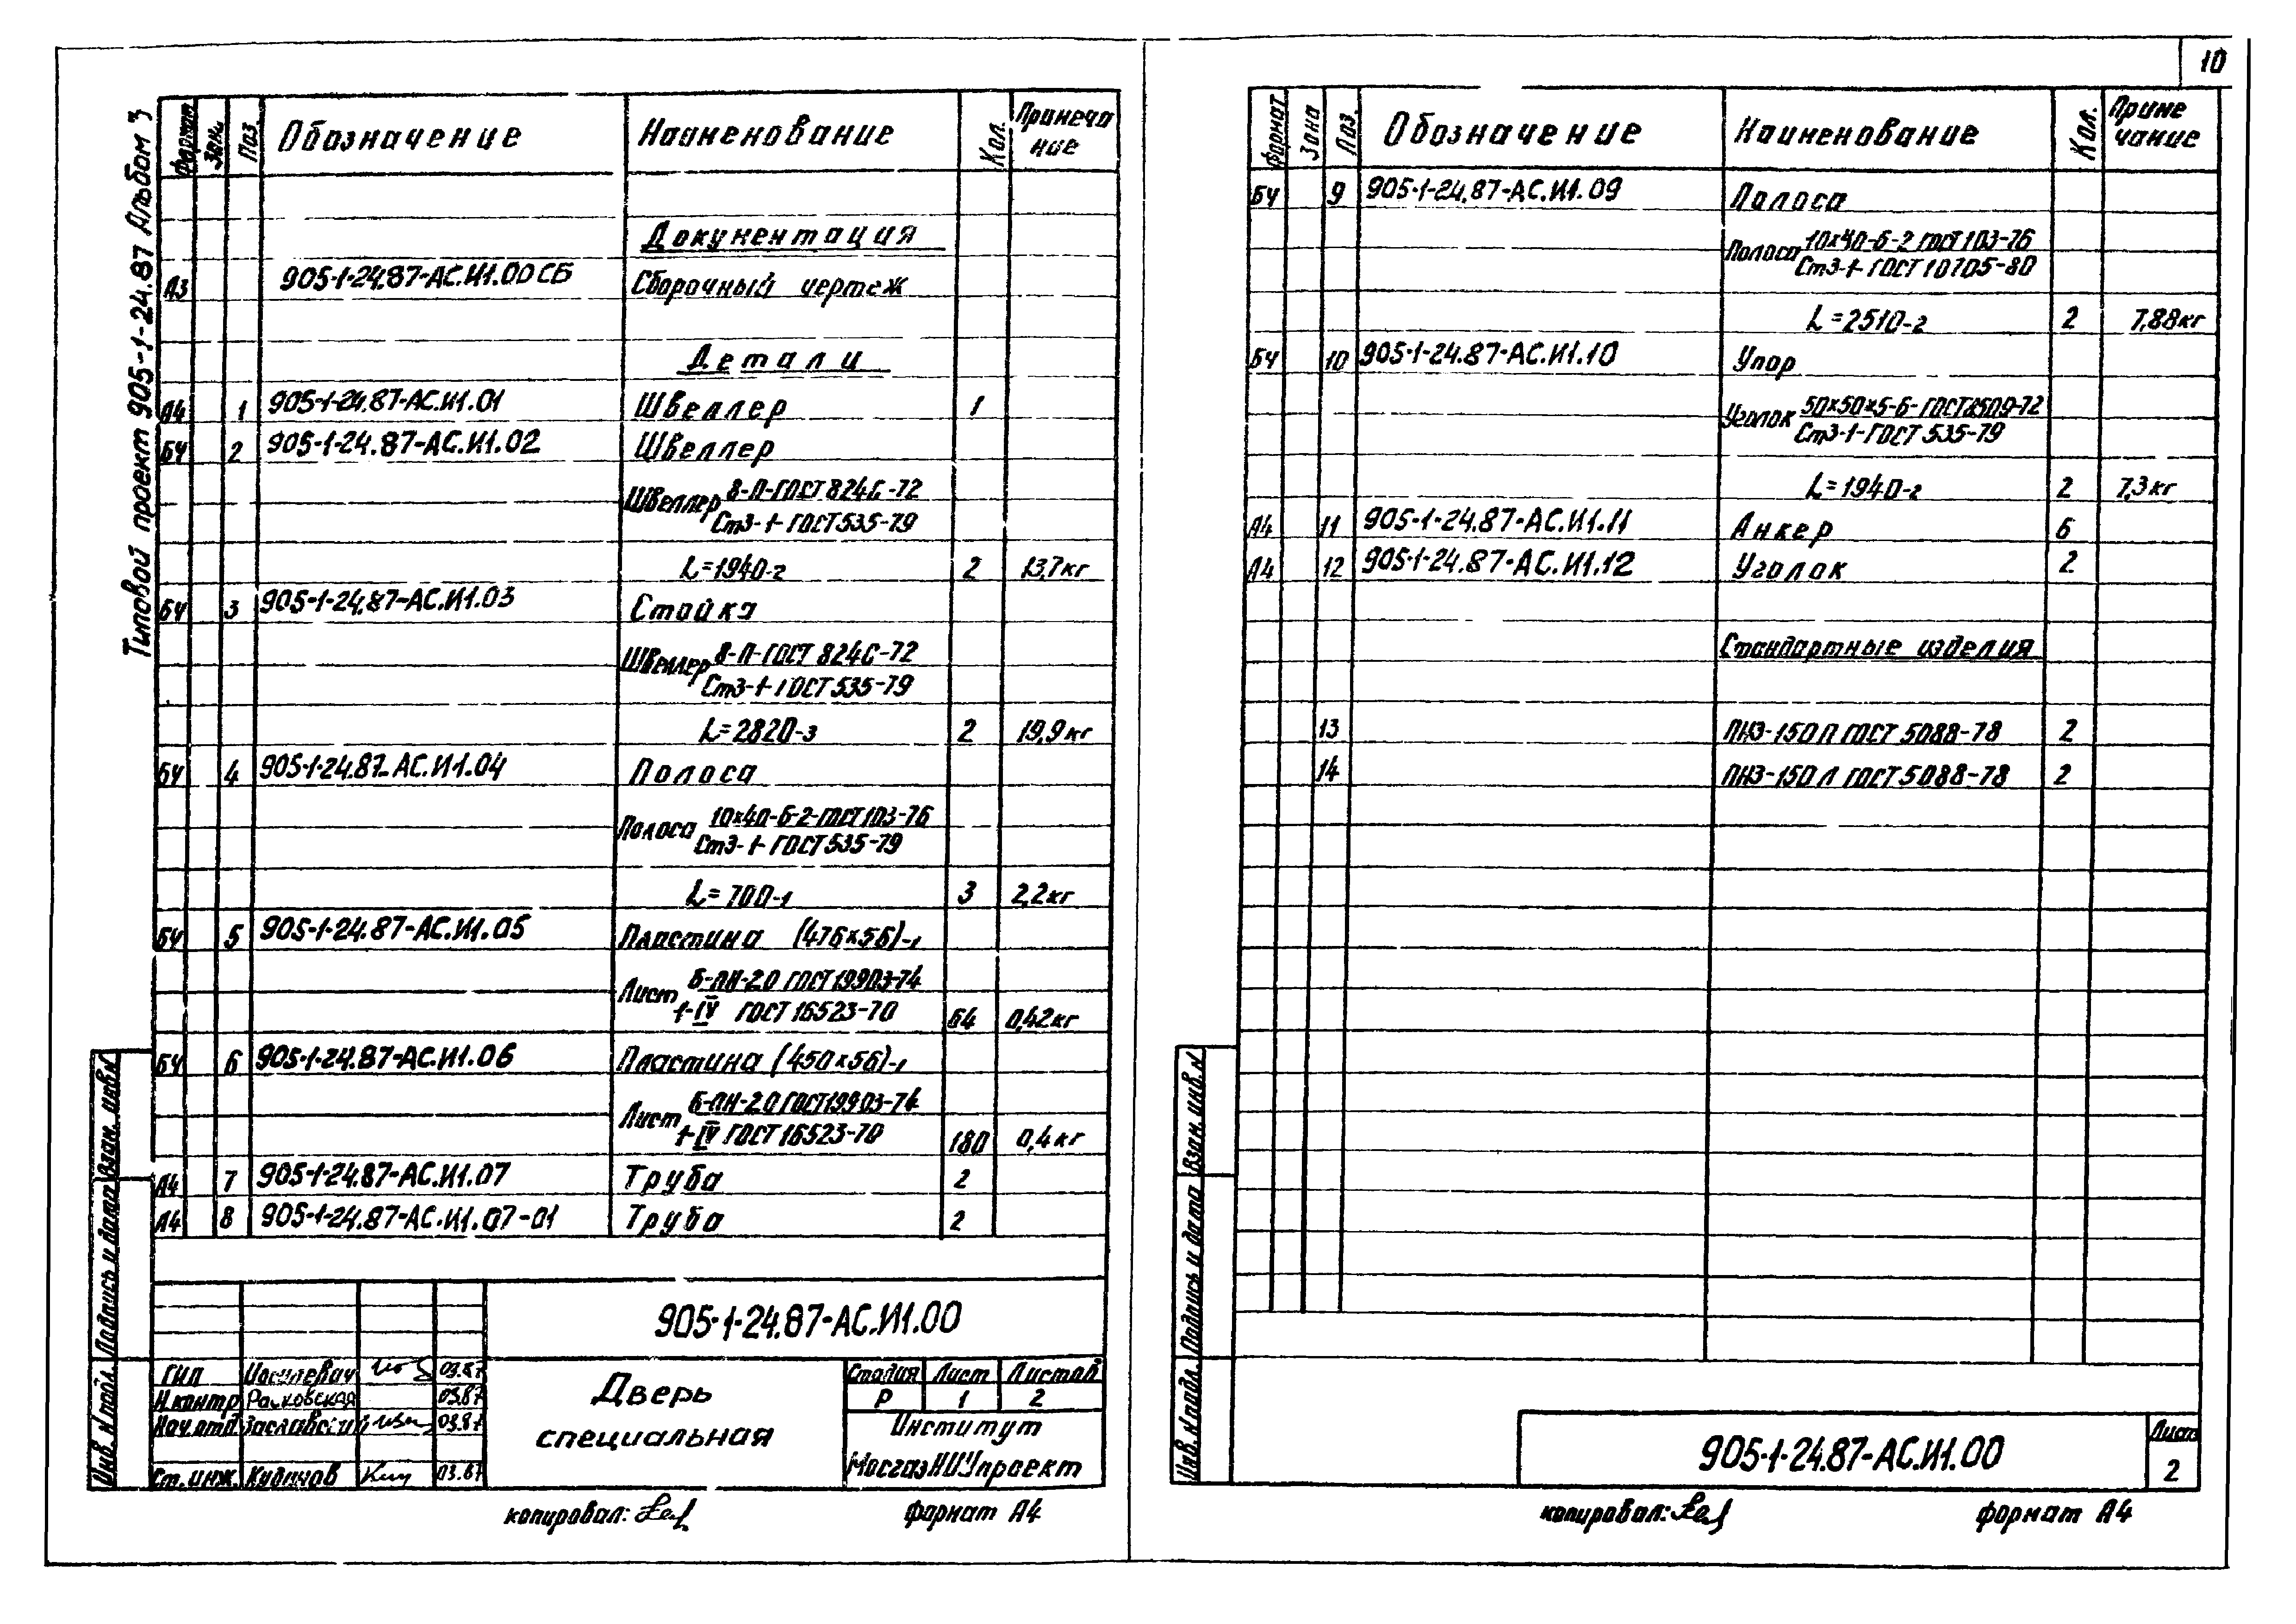 10
Типовой проект 905-1-24.87 Альбом 3
Формат Зона Поз. Обозначение Наименование Кол. Примеча
ние
Документация
А3 905-1-24.87-АС.И1.00 СБ Сборочный чертеж
Детали
А4 1 905-1-24.87-АС.И1.01 Швеллер 1
БЧ 2 905-1-24.87-АС.И1.02 Швеллер
Швеллер 8-П-ГОСТ 8240-72
Ст3-1-ГОСТ 535-79
L=1940-2 2 13,7кг
БЧ 3 905-1-24.87-АС.И1.03 Стойка
Швеллер 8-П-ГОСТ 8240-72
Ст3-1-ГОСТ 535-79
L=2820-3 2 19,9кг
БЧ 4 905-1-24.87-АС.И1.04 Полоса
Полоса 10х40-Б-2-ГОСТ 103-76
Ст3-1-ГОСТ 535-79
L=700-1 3 2,2кг
БЧ 5 905-1-24.87-АС.И1.05 Пластина (476х56)-1
Лист Б-ПН-2.0 ГОСТ 19903-74
1-IV ГОСТ 16523-70 64 0,42кг
БЧ 6 905-1-24.87-АС.И1.06 Пластина (450х56)-1
Лист Б-ПН-2.0 ГОСТ 19903-74
1-IV ГОСТ 16523-70 180 0,4кг
А4 7 905-1-24.87-АС.И1.07 Труба 2
А4 8 905-1-24.87-АС.И1.07-01 Труба 2
Инв. N подл. Подпись и дата Взам. инв. N
905-1-24.87-АС.И1.00
ГИП 03.87
Н.контр Раковская 03.87
Нач.отд. Заславский 03.87
Ст.инж. 03.87
Дверь
специальная
Стадия Лист Листов
Р 1 2
Институт
МосгазНИИпроект
копировал:
формат А4
Формат Зона Поз. Обозначение Наименование Кол. Приме
чание
БЧ 9 905-1-24.87-АС.И1.09 Полоса
Полоса 10х40-Б-2 ГОСТ 103-76
Ст3-1-ГОСТ 10705-80
L=2510-2 2 7,88кг
БЧ 10 905-1-24.87-АС.И1.10 Упор
Уголок 50х50х5-Б-ГОСТ 8509-72
Ст3-1-ГОСТ 535-79
L=1940-2 2 7,3кг
А4 11 905-1-24.87-АС.И1.11 Анкер 6
А4 12 905-1-24.87-АС.И1.12 Уголок 2
Стандартные изделия
13 ПН3-150 П ГОСТ 5088-78 2
14 ПН3-150 Л ГОСТ 5088-78 2
Инв. N подл. Подпись и дата Взам. инв. N
905-1-24.87-АС.И1.00
Лист
2
копировал:
формат А4